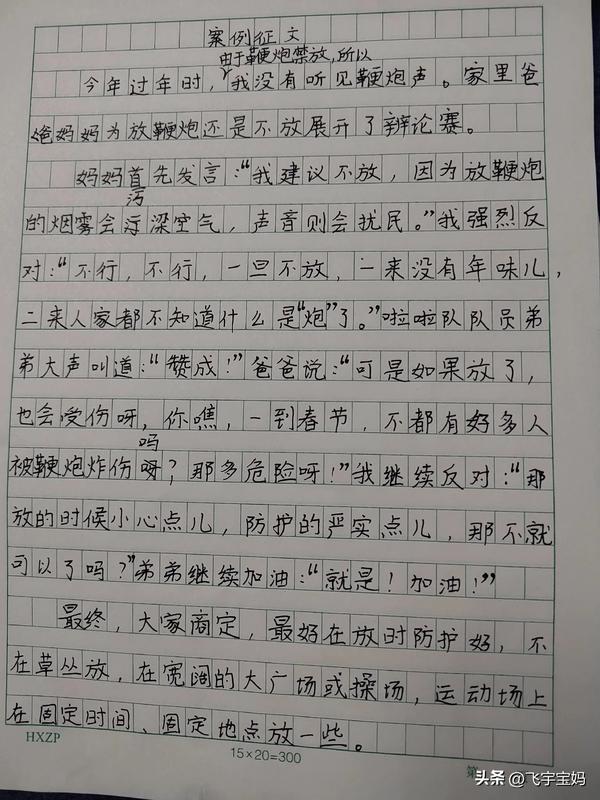 案例征文
由于鞭炮禁放,所以
今年过年时,我没有听见鞭炮声。家里爸
爸妈妈为放鞭炮还是不放展开了辩论赛。
妈妈首先发言:“我建议不放,因为放鞭炮
污
的烟雾会浮染空气,声音则会扰民。”我强烈反
对:“不行,不行,一旦不放,一来没有年味儿,
二来人家都不知道什么是“炮”了。”啦啦队队员弟
弟大声叫道:“赞成!”爸爸说:“可是如果放了,
也会受伤呀,你瞧,一到春节,不都有好多人
吗
被鞭炮炸伤呀?那多危险呀!”我继续反对:“那
放的时候小心点儿,防护的严实点儿,那不就
可以了吗?”弟弟继续加油:“就是!加油!”
最终,大家商定,最好在放时防护好,不
在草丛放,在宽阔的大广场或操场,运动场上
在固定时间、固定地点放一些。
HXZP
15×20=300
第
头条@飞宇宝妈